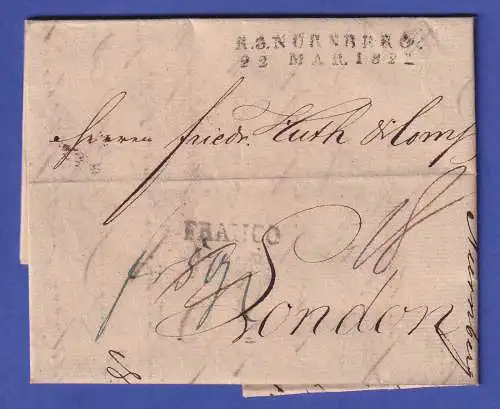 R.3.NÜRNBERG.
22 MAR.1821
Herren Friedr. Huth & Comp
FRANCO
London
Nürnberg